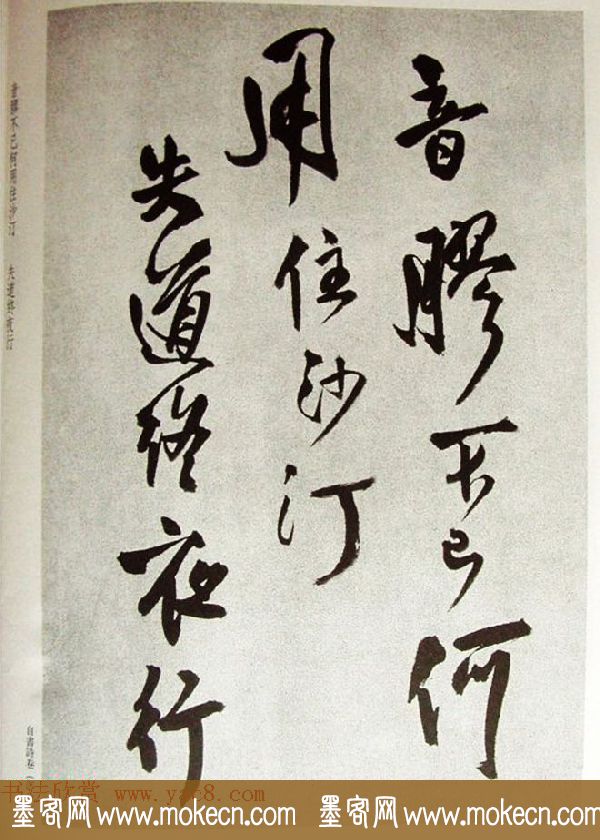 音膠不已何
用住沙汀
失道終夜行
音膠不已何用住沙汀 失道終夜行
自書詩卷
书法欣赏 www.yac8.com
墨客网 www.mokecn.com 墨客网 www.mokecn.com